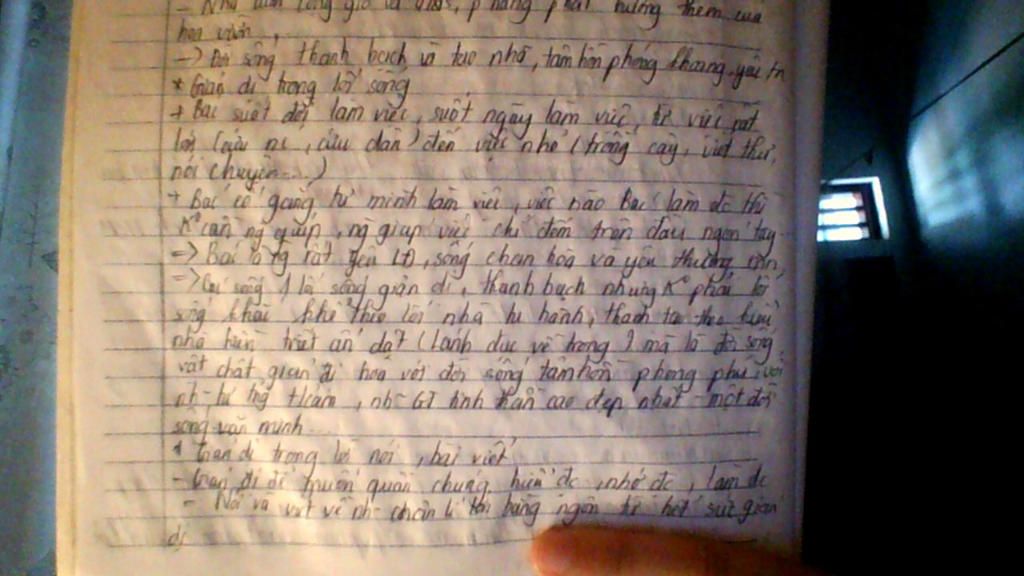 - Nhà luôn lộng gió và ánh s, phảng phất hương thơm của
hoa vườn,
-> Đời sống thanh bạch và tao nhã, tâm hồn phóng khoáng, yêu tn
* Giản dị trong lối sống
+ Bác suốt đời làm việc, suốt ngày làm việc, từ việc rất
lớn (cứu nc, cứu dân) đến việc nhỏ (trồng cây, viết thư,
nói chuyện...)
+ Bác cố gắng tự mình làm việc, việc nào Bác làm đc thì
K° cần ng giúp, ng giúp việc chỉ đếm trên đầu ngón tay
=> Bác là ng rất yêu LĐ, sống chan hòa và yêu thương
=> sống 1 lối sống giản dị, thanh bạch nhưng K° phải lối
sống khắc khổ theo lối nhà tu hành, thanh tao theo kiểu
nhà hiền triết ẩn dật (lánh đục về trong) mà là đời sống
vật chất giản dị hòa với đời sống tâm hồn phong phú, với
nh~ tư tg t/cảm, nh~ GT tinh thần cao đẹp nhất - một đời
sống văn minh...
* Giản dị trong lời nói, bài viết
- Giản dị để muốn quần chúng hiểu đc, nhớ đc, làm đc
- Nói và viết về nh~ chân lí lớn bằng ngôn từ hết sức giản
dị